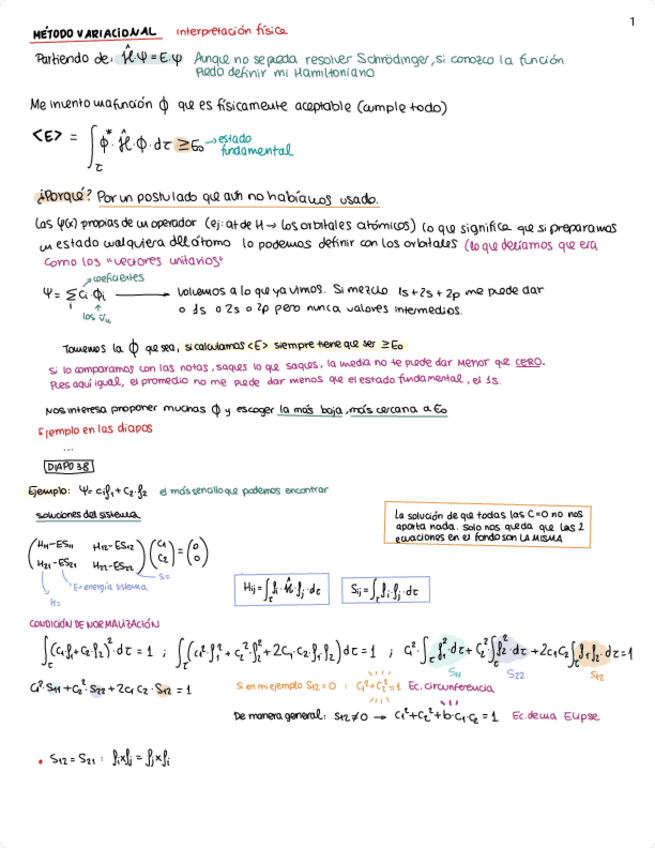 1
MÉTODO VARIACIONAL interpretación física
Partiendo de: Ĥ·Ψ = E·Ψ Aunque no se pueda resolver Schrödinger, si conozco la función
puedo definir mi Hamiltoniano
Me invento una función ϕ que es físicamente aceptable (cumple todo)
<E> = ∫τ ϕ*·Ĥ·ϕ·dτ ≥ E₀ → estado
fundamental
¿Porqué? Por un postulado que aún no habíamos usado.
Las Ψ(x) propias de un operador (ej: at de H → los orbitales atómicos) lo que significa que si preparamos
un estado cualquiera del átomo lo podemos definir con los orbitales (lo que decíamos que era
como los "vectores unitarios"
coeficientes
Ψ = Σᵢ Cᵢ·ϕᵢ → volvemos a lo que ya vimos. Si mezclo 1s + 2s + 2p me puede dar
los
o 1s o 2s o 2p pero nunca valores intermedios.
Tomemos la ϕ que sea, si calculamos <E> siempre tiene que ser ≥ E₀
Si lo comparamos con las notas, saques lo que saques, la media no te puede dar menor que CERO.
Pues aquí igual, el promedio no me puede dar menos que el estado fundamental, el 1s.
Nos interesa proponer muchas ϕ y escoger la más baja, más cercana a E₀
Ejemplo en las diapos
...
DIAPO 38
Ejemplo: Ψ = c₁f₁ + c₂·f₂ el más sencillo que podemos encontrar
soluciones del sistema
La solución de que todas las C=0 no nos
aporta nada. Solo nos queda que las 2
ecuaciones en el fondo son LA MISMA
(H₁₁-ES₁₁ H₁₂-ES₁₂) (c₁) = (0)
(H₂₁-ES₂₁ H₂₂-ES₂₂) (c₂) (0)
Hij = ∫τ fi·Ĥ·fj·dτ Sij = ∫τ fi·fj·dτ
*E=energía sistema S=
H=
CONDICIÓN DE NORMALIZACIÓN
∫(c₁f₁+c₂f₂)²·dτ = 1 ; ∫τ(c₁²·f₁² + c₂²·f₂² + 2c₁·c₂·f₁f₂)dτ = 1 ; c₁²·∫τ f₁²·dτ + c₂²∫τ f₂²·dτ + 2c₁c₂∫τ f₁f₂·dτ = 1
S₁₁ S₂₂ S₁₂
c₁²·S₁₁ + c₂²·S₂₂ + 2c₁c₂·S₁₂ = 1 Si en mi ejemplo S₁₂=0 : c₁²+c₂²=1 Ec. circunferencia
De manera general: S₁₂≠0 → c₁²+c₂²+b·c₁·c₂ = 1 Ec. de una Elipse
• S₁₂ = S₂₁ : fixfj = fjxfi